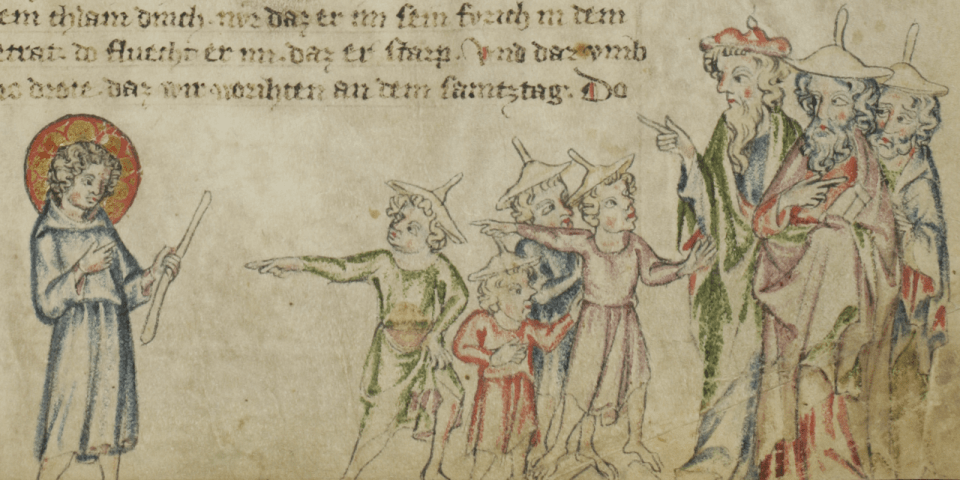 em chlain druch. nur daz er im sein furch in dem
etrat. do fluecht er im. daz er starp. Vnd daz vmb
daz wir worihten an dem samtztag. Do